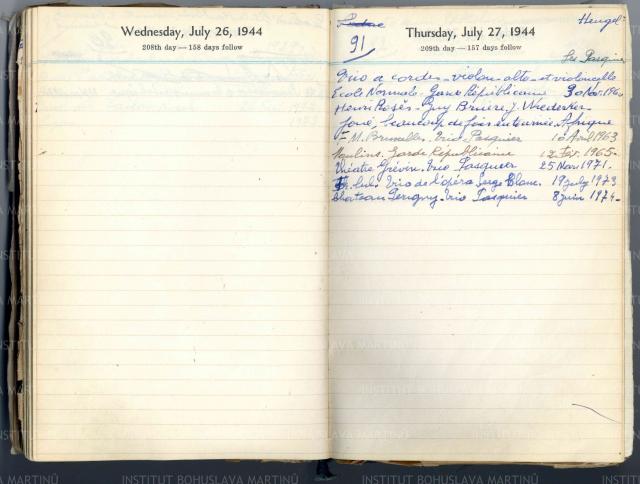 Wednesday, July 26, 1944
208th day — 158 days follow
Heugel
91
Thursday, July 27, 1944
209th day — 157 days follow
Les Pasquier
Trio a cordes - violon - alto - et violoncelle
Ecole Normale - Garde Républicaine 30 Nov. 196
Henri - Guy Bruère - J. Wiederker
Joué beaucoup de fois en tournée Afrique
M. Bruxelles. Trio Pasquier 10 Avril 1963
Moulins. Garde Républicaine 12 Fev. 1965.
Théatre Grévin. Trio Pasquier 25 Nov 1971.
Trio de l'opéra Serge Blanc. 19 July 1973
Chateau Perigny - trio Pasquier 8 juin 1974.
INSTITUT BOHUSLAVA MARTINŮ